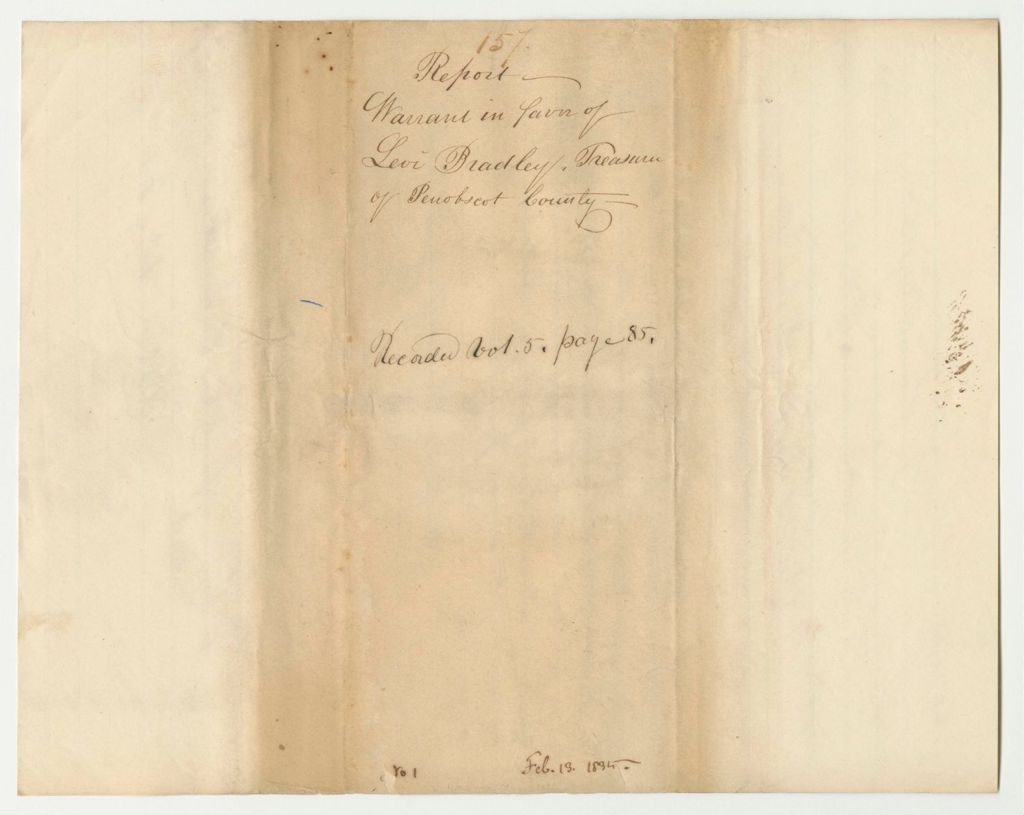 157.
Report
Warrant in favor of
Levi Bradley, Treasurer
of Penobscot County
Recorded Vol. 5. page 85.
No 1
Feb. 13. 1835.